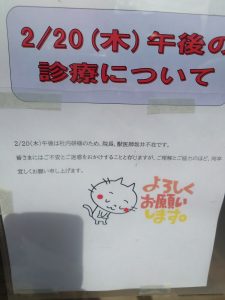 2/20(木)午後の
診療について
2/20(木)午後は社内研修のため、院長、獣医師坂井不在です。
皆さまにはご不安とご迷惑をおかけすることと存じますが、ご理解とご協力のほど、何卒
宜しくお願い申し上げます。
よろしく
お願い
します。